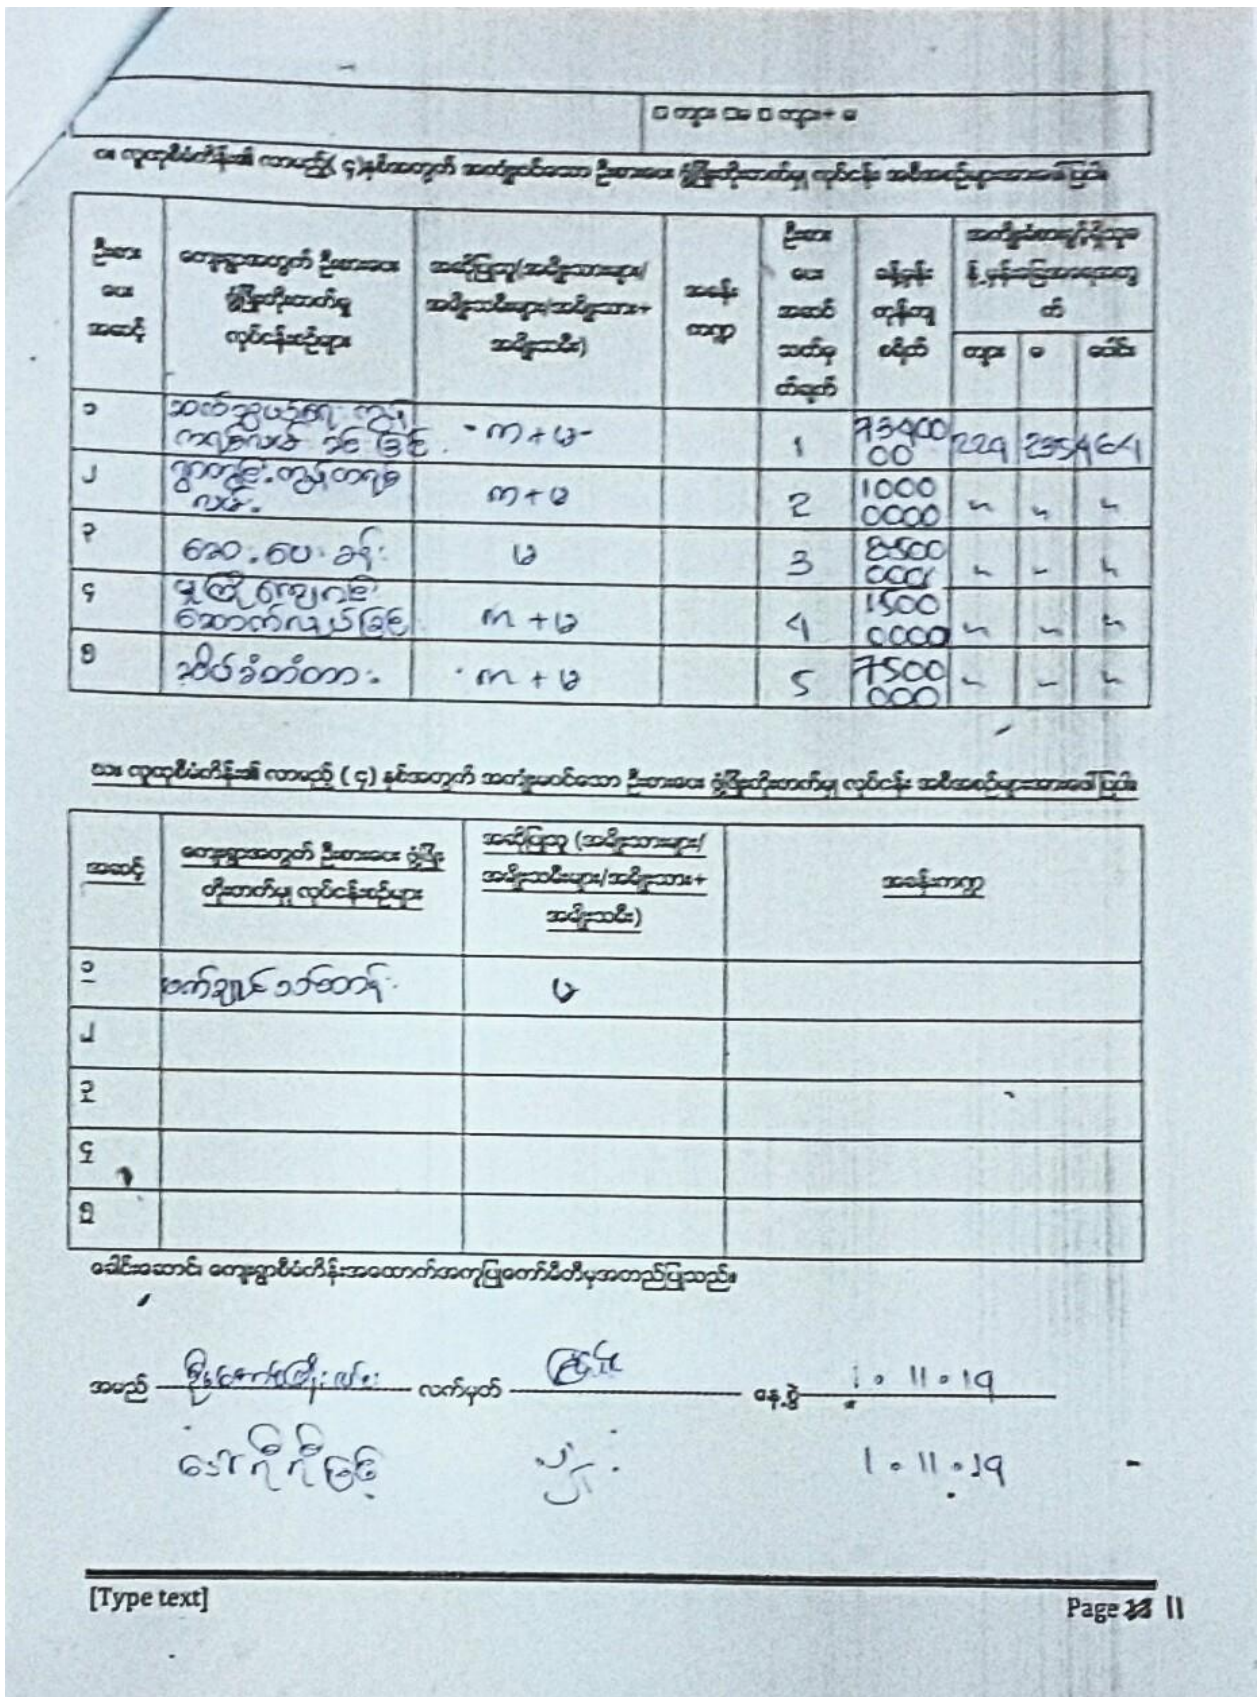 □ ကျား □မ □ ကျား+ မ
၈။ လူထုစီမံကိန်း၏ လာမည့်( ၄)နှစ်အတွက် အကျုံးဝင်သော ဦးစားပေး ဖွံ့ဖြိုးတိုးတက်မှု လုပ်ငန်း အစီအစဉ်များအားဖော်ပြပါ။
ဦးစားပေးအဆင့်
ကျေးရွာအတွက် ဦးစားပေး ဖွံ့ဖြိုးတိုးတက်မှု လုပ်ငန်းစဉ်များ
အဆိုပြုသူ(အမျိုးသားများ/အမျိုးသမီးများ/အမျိုးသား+အမျိုးသမီး)
အခန်းကဏ္ဍ
ဦးစားပေးအဆင့်သတ်မှတ်ချက်
ခန့်မှန်းကုန်ကျစရိတ်
အကျိုးခံစားခွင့်ရှိသူခန့်မှန်းခြေအရေအတွက်
ကျား မ ပေါင်း
၁ ကွန်ကရစ်လမ်းခင်းခြင်း - က + မ - 1 7340000 229 235 464
၂ ရွာတွင်းကွန်ကရစ်လမ်း က + မ 2 10000000 〃 〃 〃
၃ ဆေးပေးခန်း မ 3 8500000 〃 〃 〃
၄ မူကြိုကျောင်းဆောက်လုပ်ခြင်း က + မ 4 15000000 〃 〃 〃
၅ ဆိပ်ခံတံတား က + မ 5 7500000 〃 〃 〃
လူထုစီမံကိန်း၏ လာမည့် ( ၄) နှစ်အတွက် အကျုံးမဝင်သော ဦးစားပေး ဖွံ့ဖြိုးတိုးတက်မှု လုပ်ငန်း အစီအစဉ်များအားဖော်ပြပါ။
အဆင့်
ကျေးရွာအတွက် ဦးစားပေး ဖွံ့ဖြိုးတိုးတက်မှု လုပ်ငန်းစဉ်များ
အဆိုပြုသူ (အမျိုးသားများ/အမျိုးသမီးများ/အမျိုးသား+အမျိုးသမီး)
အခန်းကဏ္ဍ
၁ စက်ချုပ်သင်တန်း မ
၂
၃
၄
၅
ခေါင်းဆောင်၊ ကျေးရွာစီမံကိန်းအထောက်အကူပြုကော်မီတီမှအတည်ပြုသည်။
အမည် လက်မှတ် နေ့စွဲ 1.11.19
ဒေါ်ကီကီမြင့် 1.11.19
[Type text]
Page 11